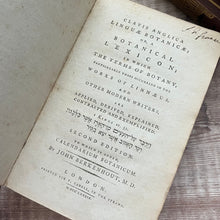 CLAVIS ANGLICA
LINGUÆ BOTANICÆ;
OR, A
BOTANICAL
LEXICON;
IN WHICH
THE TERMS OF BOTANY,
PARTICULARLY THOSE OCCURRING IN THE
WORKS OF LINNÆUS,
AND
OTHER MODERN WRITERS,
ARE
APPLIED, DERIVED, EXPLAINED,
CONTRASTED AND EXEMPLIFIED.
SECOND EDITION.
TO WHICH IS ADDED,
CALENDARIUM BOTANICUM.
BY JOHN BERKENHOUT, M.D.
LONDON,